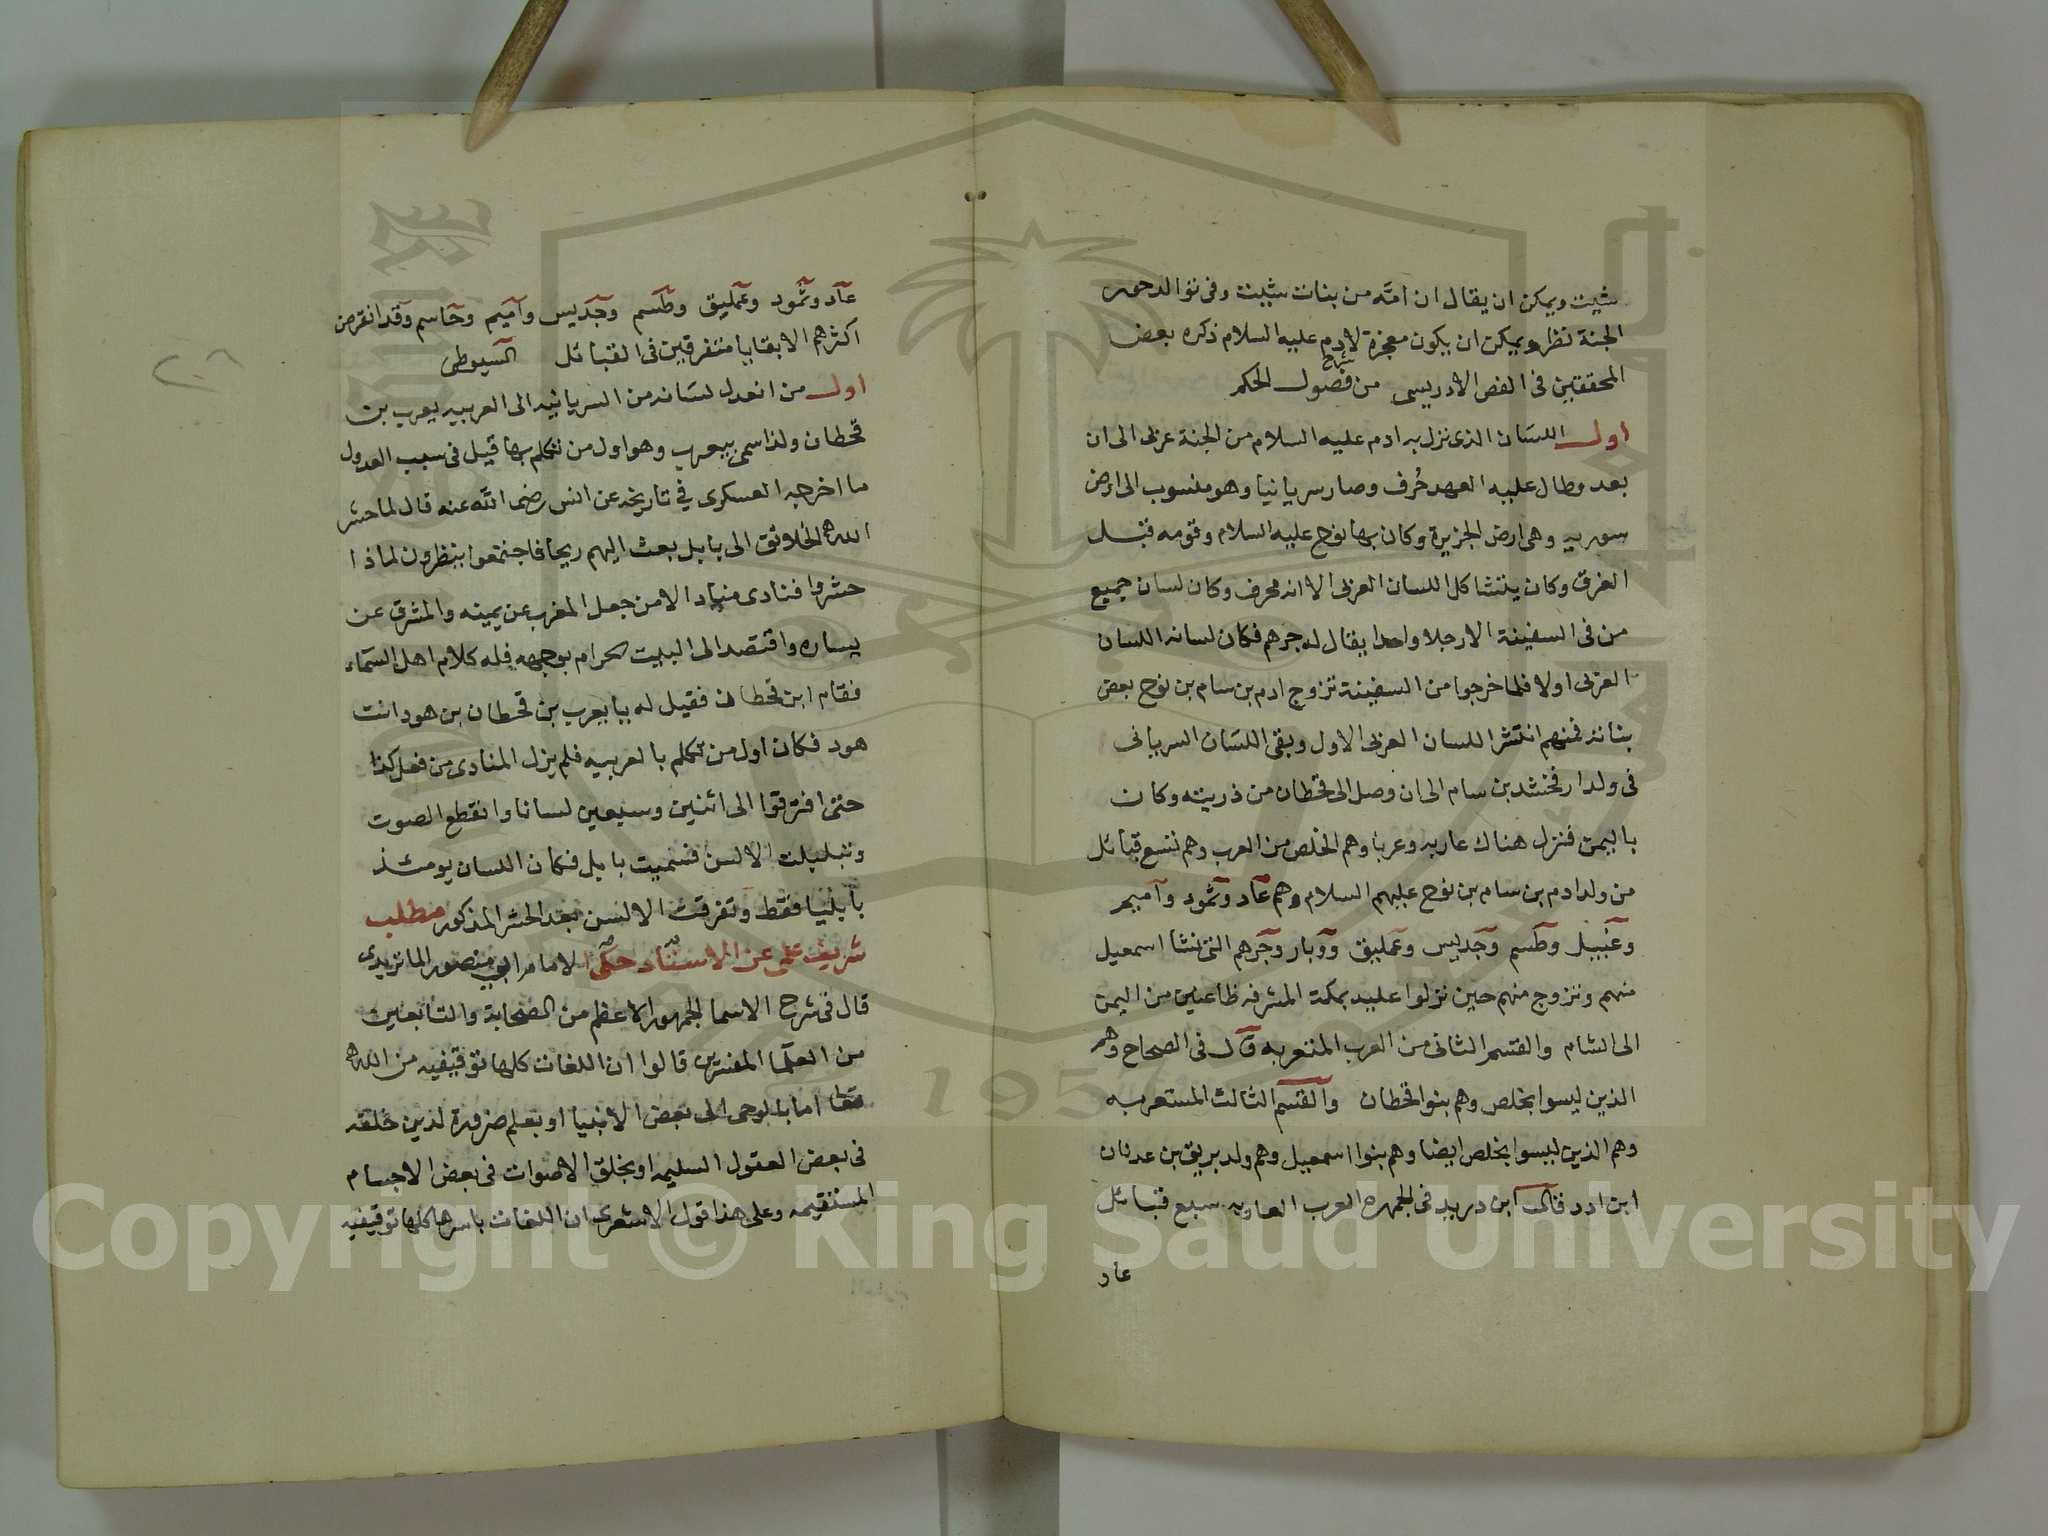 شيت ويمكن ان يقال ان امته من بنات شيت وفى توالد حور
الجنة نظر ويمكن ان يكون معجزة لادم عليه السلام ذكره بعض
المحققين فى الفص الادريسى من شرح فصول الحكم
اول اللسان الذى نزل به ادم عليه السلام من الجنة عربى الى ان
بعد وطال عليه العهد حُرف وصار سريانيا وهو منسوب الى ارض
سوريه وهى ارض الجزيرة وكان بها نوح عليه السلام وقومه قبل
الغرق وكان يتشاكل اللسان العربى الا انه محرف وكان لسان جميع
من فى السفينة الا رجلا واحدا يقال له جرهم فكان لسانه اللسان
العربى اولا فلما خرجوا من السفينة تزوج ادم بن سام بن نوح بعض
بناته فمنهم انتشر اللسان العربى الاول وبقى اللسان السريانى
فى ولد ارفخشد بن سام الى ان وصل الى قحطان من ذريته وكان
باليمن فنزل هناك عاربه وعربا وهم الخلص من العرب وهم تسع قبائل
من ولد ادم بن سام بن نوح عليهم السلام وهم عاد وثمود واميم
وعبيل وطسم وجديس وعمليق ووبار وجرهم التى نشا اسمعيل
منهم وتزوج منهم حين نزلوا عليه بمكة المشرفه ظاعنين من اليمن
الى الشام والقسم الثانى من العرب المتعربه قال فى الصحاح وهم
الذين ليسوا بخلص وهم بنوا قحطان والقسم الثالث المستعربه
وهم الذين ليسوا بخلص ايضا وهم بنوا اسمعيل وهم ولد بريق بن عدنان
ابن ادد قال ابن دريد فى الجمهرة العرب العاربه سبع قبائل
عاد
عاد وثمود وعمليق وطسم وجديس واميم وجاسم وقد انقرض
اكثرهم الا بقايا متفرقين فى القبائل السيوطى
اول من انعدل لسانه من السريانيه الى العربيه يعرب بن
قحطان ولذا سمى بيعرب وهو اول من تكلم بها قيل فى سبب العدول
ما اخرجه العسكرى في تاريخه عن انس رضى الله عنه قال لما حشر
الله الخلائق الى بابل بعث اليهم ريحا فاجتمعوا ينظرون لماذا
حشروا فنادى مناد الا من جعل المغرب عن يمينه والمشرق عن
يساره واقتصد الى البيت الحرام بوجهه فله كلام اهل السماء
فقام ابن قحطان فقيل له يا يعرب بن قحطان بن هود انت
هود فكان اول من تكلم بالعربيه فلم يزل المنادى من فعل كذا
حتى افترقوا الى اثنين وسبعين لسانا وانقطع الصوت
وتبلبلت الالسن فسميت بابل فكان اللسان يومئذ
بابليا فقط وتفرقت الالسن بعد الحشر المذكور مطلب
شريف على عن الاستاد حكى الامام ابى منصور الماتريدى
قال فى شرح الاسما الجمهور الاعظم من الصحابة والتابعين
من العلما المفسرين قالوا ان اللغات كلها توقيفيه من الله
تعا اما بالوحى الى بعض الانبيا او بعلم ضرورة لذين خلقه
فى بعض العقول السليمه او بخلق الاصوات فى بعض الاجسام
المستقيمه وعلى هذا قول الاشعرى ان اللغات باسرها كلها توقيفيه
1957
Copyright © King Saud University